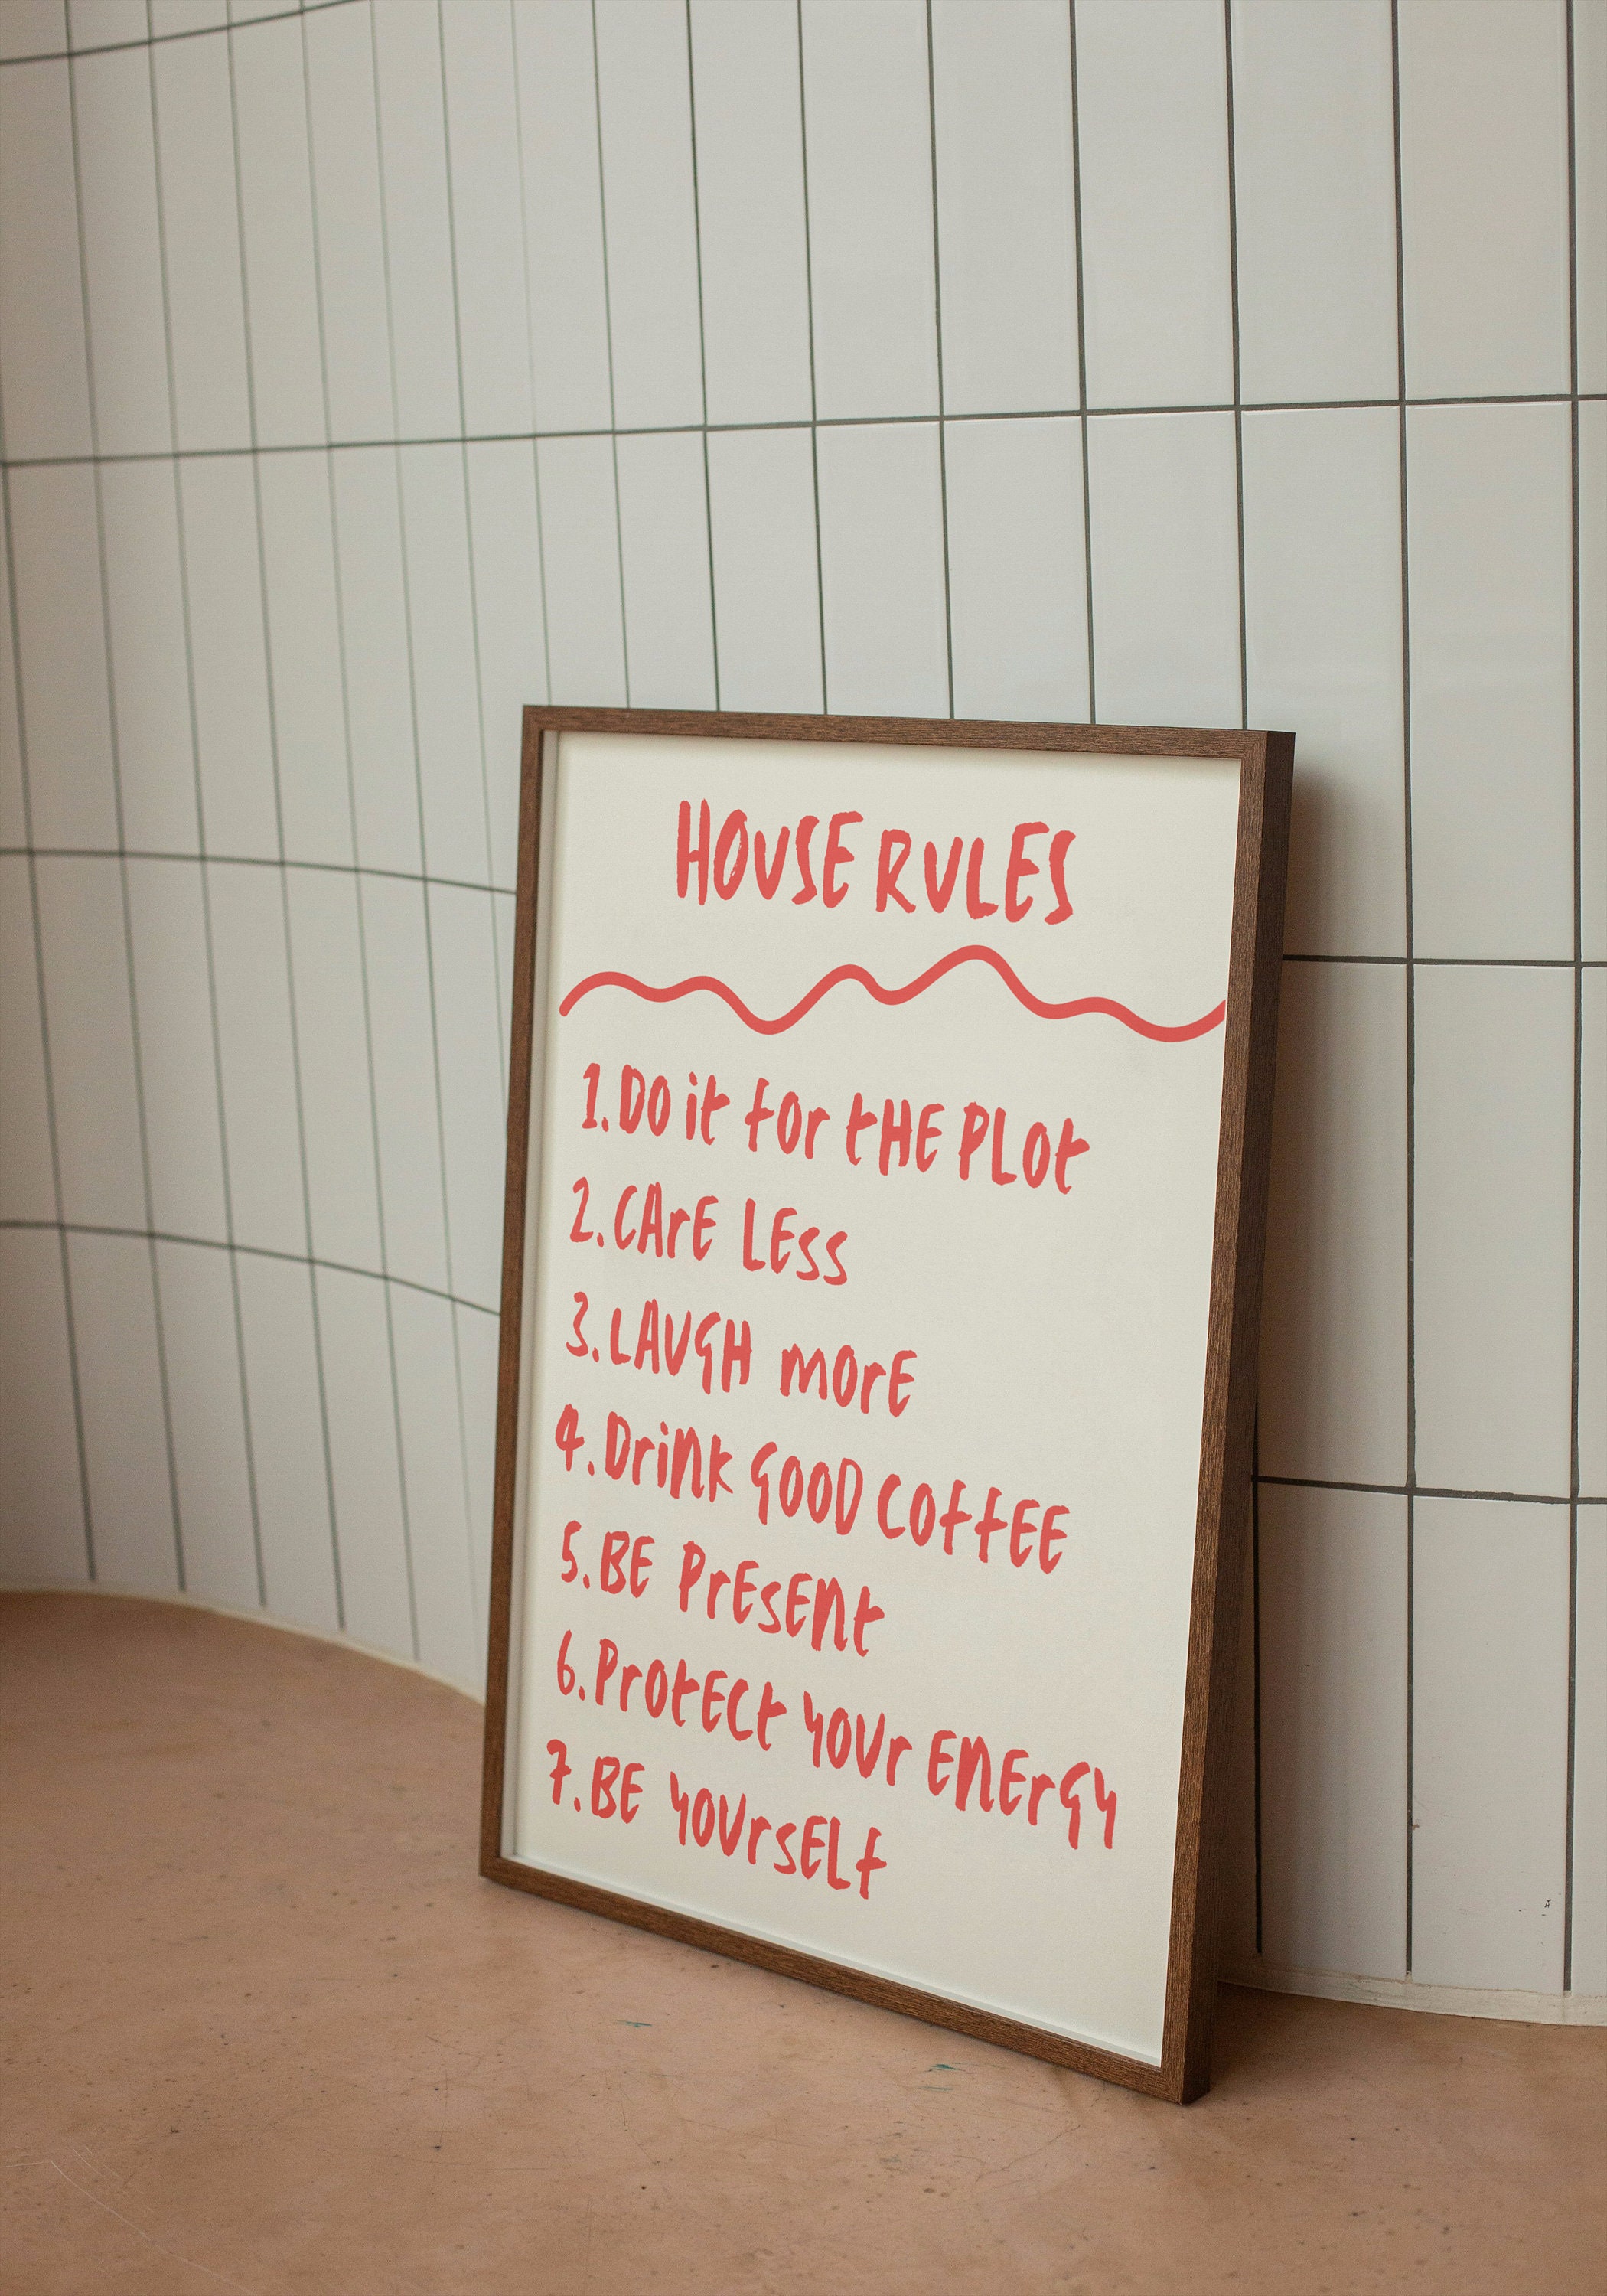 HOUSE RULES
1. DO it for tHE PLOt
2. CArE LEss
3. LAUGH morE
4. DriNk GOOD COffEE
5. BE PrEsENt
6. PrOtECt YOUr ENErGY
7. BE YOUrsELf